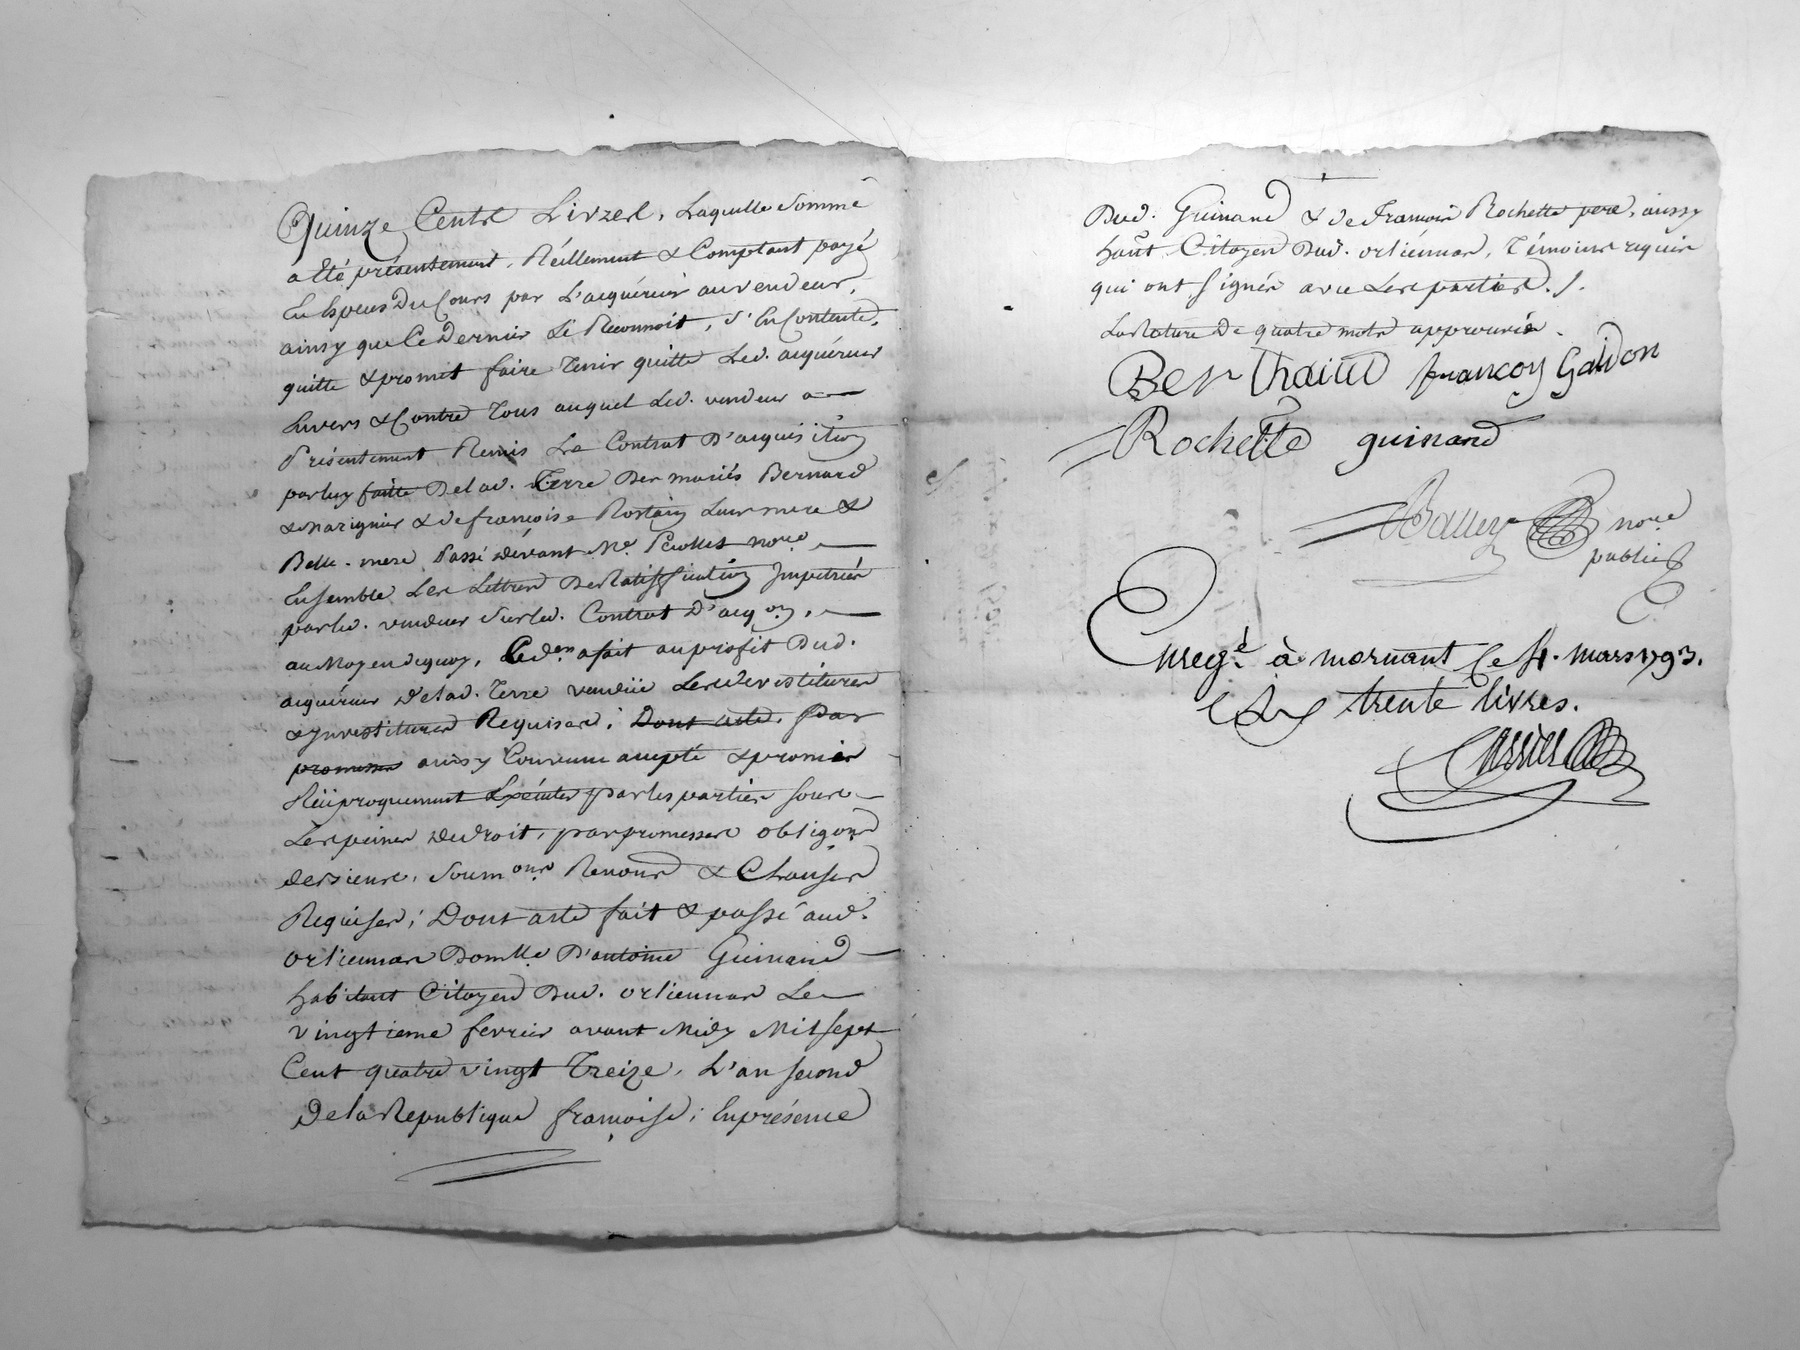 Quinze Cents Livres, Laquelle Somme
a Eté présentement, Réellement & Comptant payé
En Especes Du Cours par L'acquéreur au vendeur,
ainsy que Ce Dernier Le Reconnoit, S'En Contente,
quitte & promet faire Tenir quitte Led. acquéreur
Envers & Contre Tous auquel Led. vendeur a
Présentement Remis Le Contrat D'acquisition
par luy faitte De lad. Terre Des mariés Bernard
& marignier & de françoise Rostaing Leur mere &
Belle-mere Passé devant Me. no.re
Ensemble Les Lettres De Ratiffication Impetrées
par led. vendeur Sur led. Contrat D'acq.on,
au Moyen de quoy, Led.en a fait au profit Dud.
acquéreur De lad. Terre vendüe Les devestitures
& Investitures Requises; Dont acte, Par
promesses ainsy Convenu accepté & promis
Réciproquement Exécuter par les parties sous
Les peines de droit, par promesses oblig.ons
de biens, Soum.ons Renon.s & Clauses
Requises; Dont acte fait & passé aud.
orliennas Dom.lle D'antoine Guinand
habitant Citoyen Dud. orliennas Le
vingtieme fevrier avant Midy Mil sept
Cent quatre vingt Treize, L'an second
De la Republique françoise; En présence
Dud. Guinand & de François Rochette pere, aussy
hant Citoyen Dud. orliennas, Témoins requis
qui ont signés avec Les parties./.
La Rature De quatre mots approuvée.
Berthaud françoy Gaudon
Rochette guinand
no.re
public
Enreg.é à mornant Le 4. mars 1793.
trente livres.